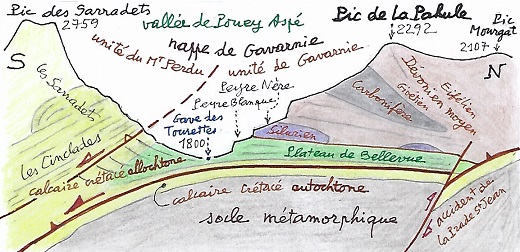 Pic des Sarradets
2759
vallée de Pouey Aspé
Pic de La Pahule
2292
Pic
Mourgat
2107
nappe de Gavarnie
unité du Mt Perdu
unité de Gavarnie
S
N
les Sarradets
les Cinclades
Peyre Nère
Peyre Blanque
Gave des
Tourettes
1800
Silurien
Carbonifère
Dévonien moyen
Eifélien
Givétien
Plateau de Bellevue
calcaire crétacé allochtone
calcaire crétacé autochtone
socle métamorphique
accident de
la Prade St Jean